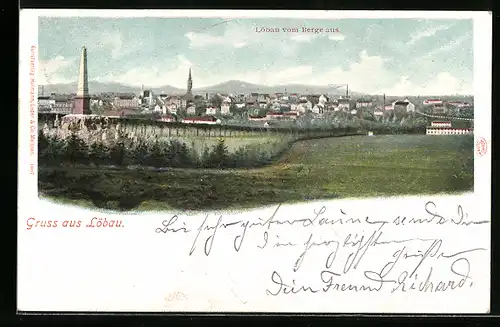 Löbau vom Berge aus.
Gruss aus Löbau.
Bei sehr guter Laune sende Dir
die herzlichsten Grüße
Dein Freund Richard.